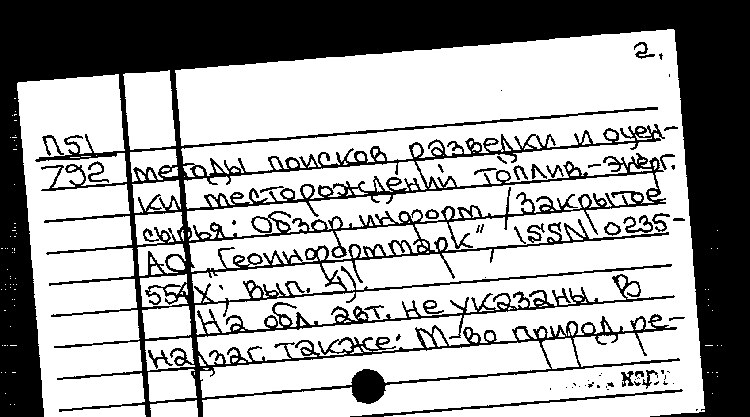 2.
П51
792 методы поисков, разведки и оцен-
ки месторождений топлив.-энерг.
сырья: Обзор. информ. / Закрытое
АО "Геоинформмарк", ISSN 0235-
554X; вып. 4).
На обл. авт. не указаны. В
надзаг. также: М-во природ. ре-